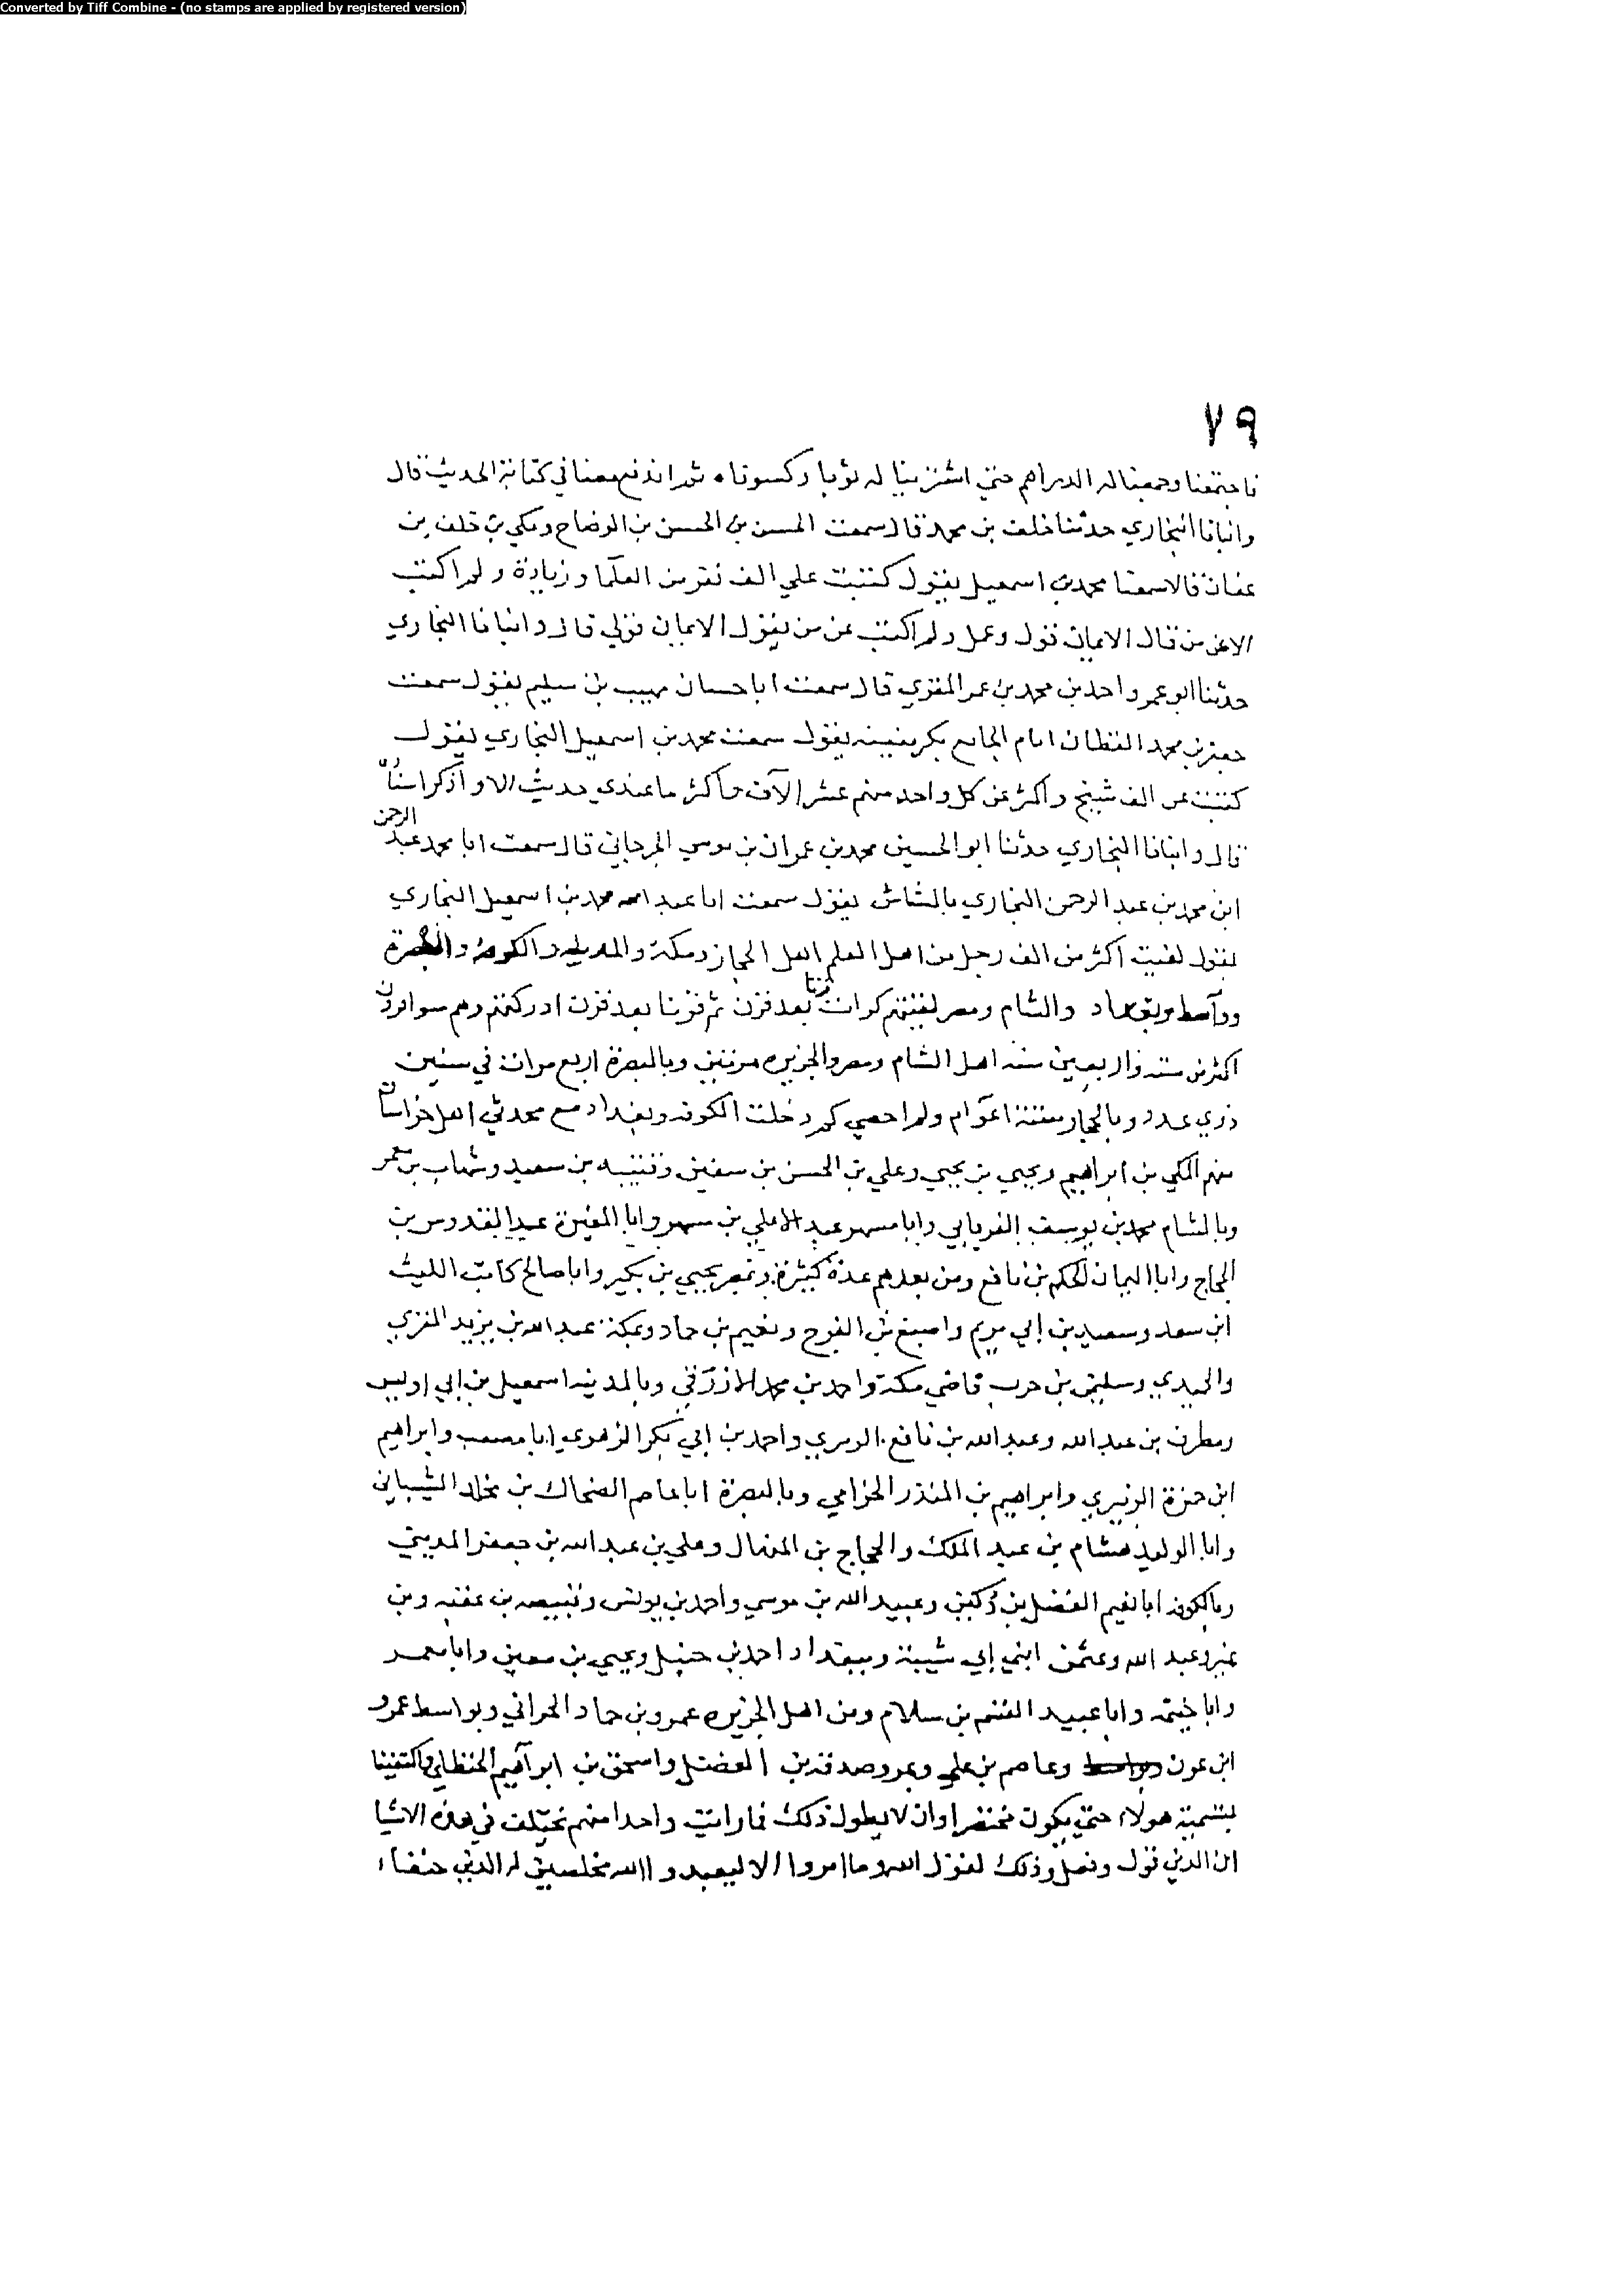 Converted by Tiff Combine - (no stamps are applied by registered version)
٧٩
فاجتمعنا وجمعنا له الدراهم حتي اشترينا له ثوبا وكسوناه ثم اندفع معنا في كتابة الحديث قال
وانبانا البخاري حدثنا خلف بن محمد قال سمعت الحسن بن الحسن بن الوضاح ومكي بن خلف بن
عفان قالا سمعنا محمد بن اسمعيل يقول كتبت علي الف نفر من العلما وزيادة ولم اكتب
الا عن من قال الايمان قول وعمل ولم اكتب عن من يقول الايمان قولي قال وانبانا البخاري
حدثنا ابو عمرو احمد بن محمد بن عمر المقري قال سمعت ابا حسان مهيب بن سليم يقول سمعت
جعفر بن محمد القطان امام الجامع بكرمينيه يقول سمعت محمد بن اسمعيل البخاري يقول
كتبت عن الف شيخ واكثر عن كل واحد منهم عشر الآف واكثر ما عندي حديث الا و اذكر اسناده
قال وانبانا البخاري حدثنا ابو الحسين محمد بن عمران بن موسي الجرجاني قال سمعت ابا محمد عبد الرحمن
ابن محمد بن عبد الرحمن البخاري بالشاش يقول سمعت ابا عبد الله محمد بن اسمعيل البخاري
يقول لقيت اكثر من الف رجل من اهل العلم اهل الحجاز ومكة والمدينه والكوفه والبصرة
وواسط وبغداد والشام ومصر لقيتهم كرات قرنا بعد قرن ثم قرنا بعد قرن ادركتهم وهم متوافرون
اكثر من ستة واربعين سنه اهل الشام ومصر والجزيره مرتين وبالبصرة اربع مرات في سنين
ذوي عدد وبالحجاز ستة اعوام ولم احصي كم دخلت الكوفه وبغداد مع محدثي اهل خراسان
منهم المكي بن ابراهيم ويحيي بن يحيي وعلي بن الحسن بن سفين وقتيبه بن سعيد وشهاب بن معمر
وبالشام محمد بن يوسف الفريابي وابا مسهر عبد الاعلي بن مسهر وابا المغيرة عبد القدوس بن
الحجاج وابا اليمان الحكم بن نافع ومن بعدهم عدة كثيرة وبمصر يحيي بن بكير وابا صالح كاتب الليث
ابن سعد وسعيد بن ابي مريم واصبغ بن الفرج ونعيم بن حماد وبمكة عبد الله بن يزيد المقري
والحميدي وسليمن بن حرب قاضي مكة واحمد بن محمد الازرقي وبالمدينه اسمعيل بن ابي اويس
ومطرف بن عبد الله وعبد الله بن نافع الزبيري واحمد بن ابي بكر الزهري ابا مصعب وابراهيم
ابن حمزة الزبيري وابراهيم بن المنذر الحزامي وبالبصرة ابا عاصم الضحاك بن مخلد الشيباني
وابا الوليد هشام بن عبد الملك والحجاج بن المنهال وعلي بن عبد الله بن جعفر المديني
وبالكوفه ابا نعيم الفضل بن دكين وعبيد الله بن موسي واحمد بن يونس وقبيصه بن عقبه وبن
نمير وعبد الله وعثمن ابني ابي شيبة وببغداد احمد بن حنبل ويحيي بن معين وابا معمر
وابا خيثمه وابا عبيد القسم بن سلام ومن اهل الجزيره عمرو بن حماد الحراني وبواسط عمرو
ابن عون وعاصم بن علي وبمرو صدقة بن الفضل واسحق بن ابراهيم الحنظلي واكتفينا
بتسمية هولاء حتي يكون مختصرا وان لا يطول ذلك فما رايت واحدا منهم يختلف في هذه الاشيا
ان الدين قول وفعل وذلك لقول الله وما امروا الا ليعبدوا الله مخلصين له الدين حنفاء